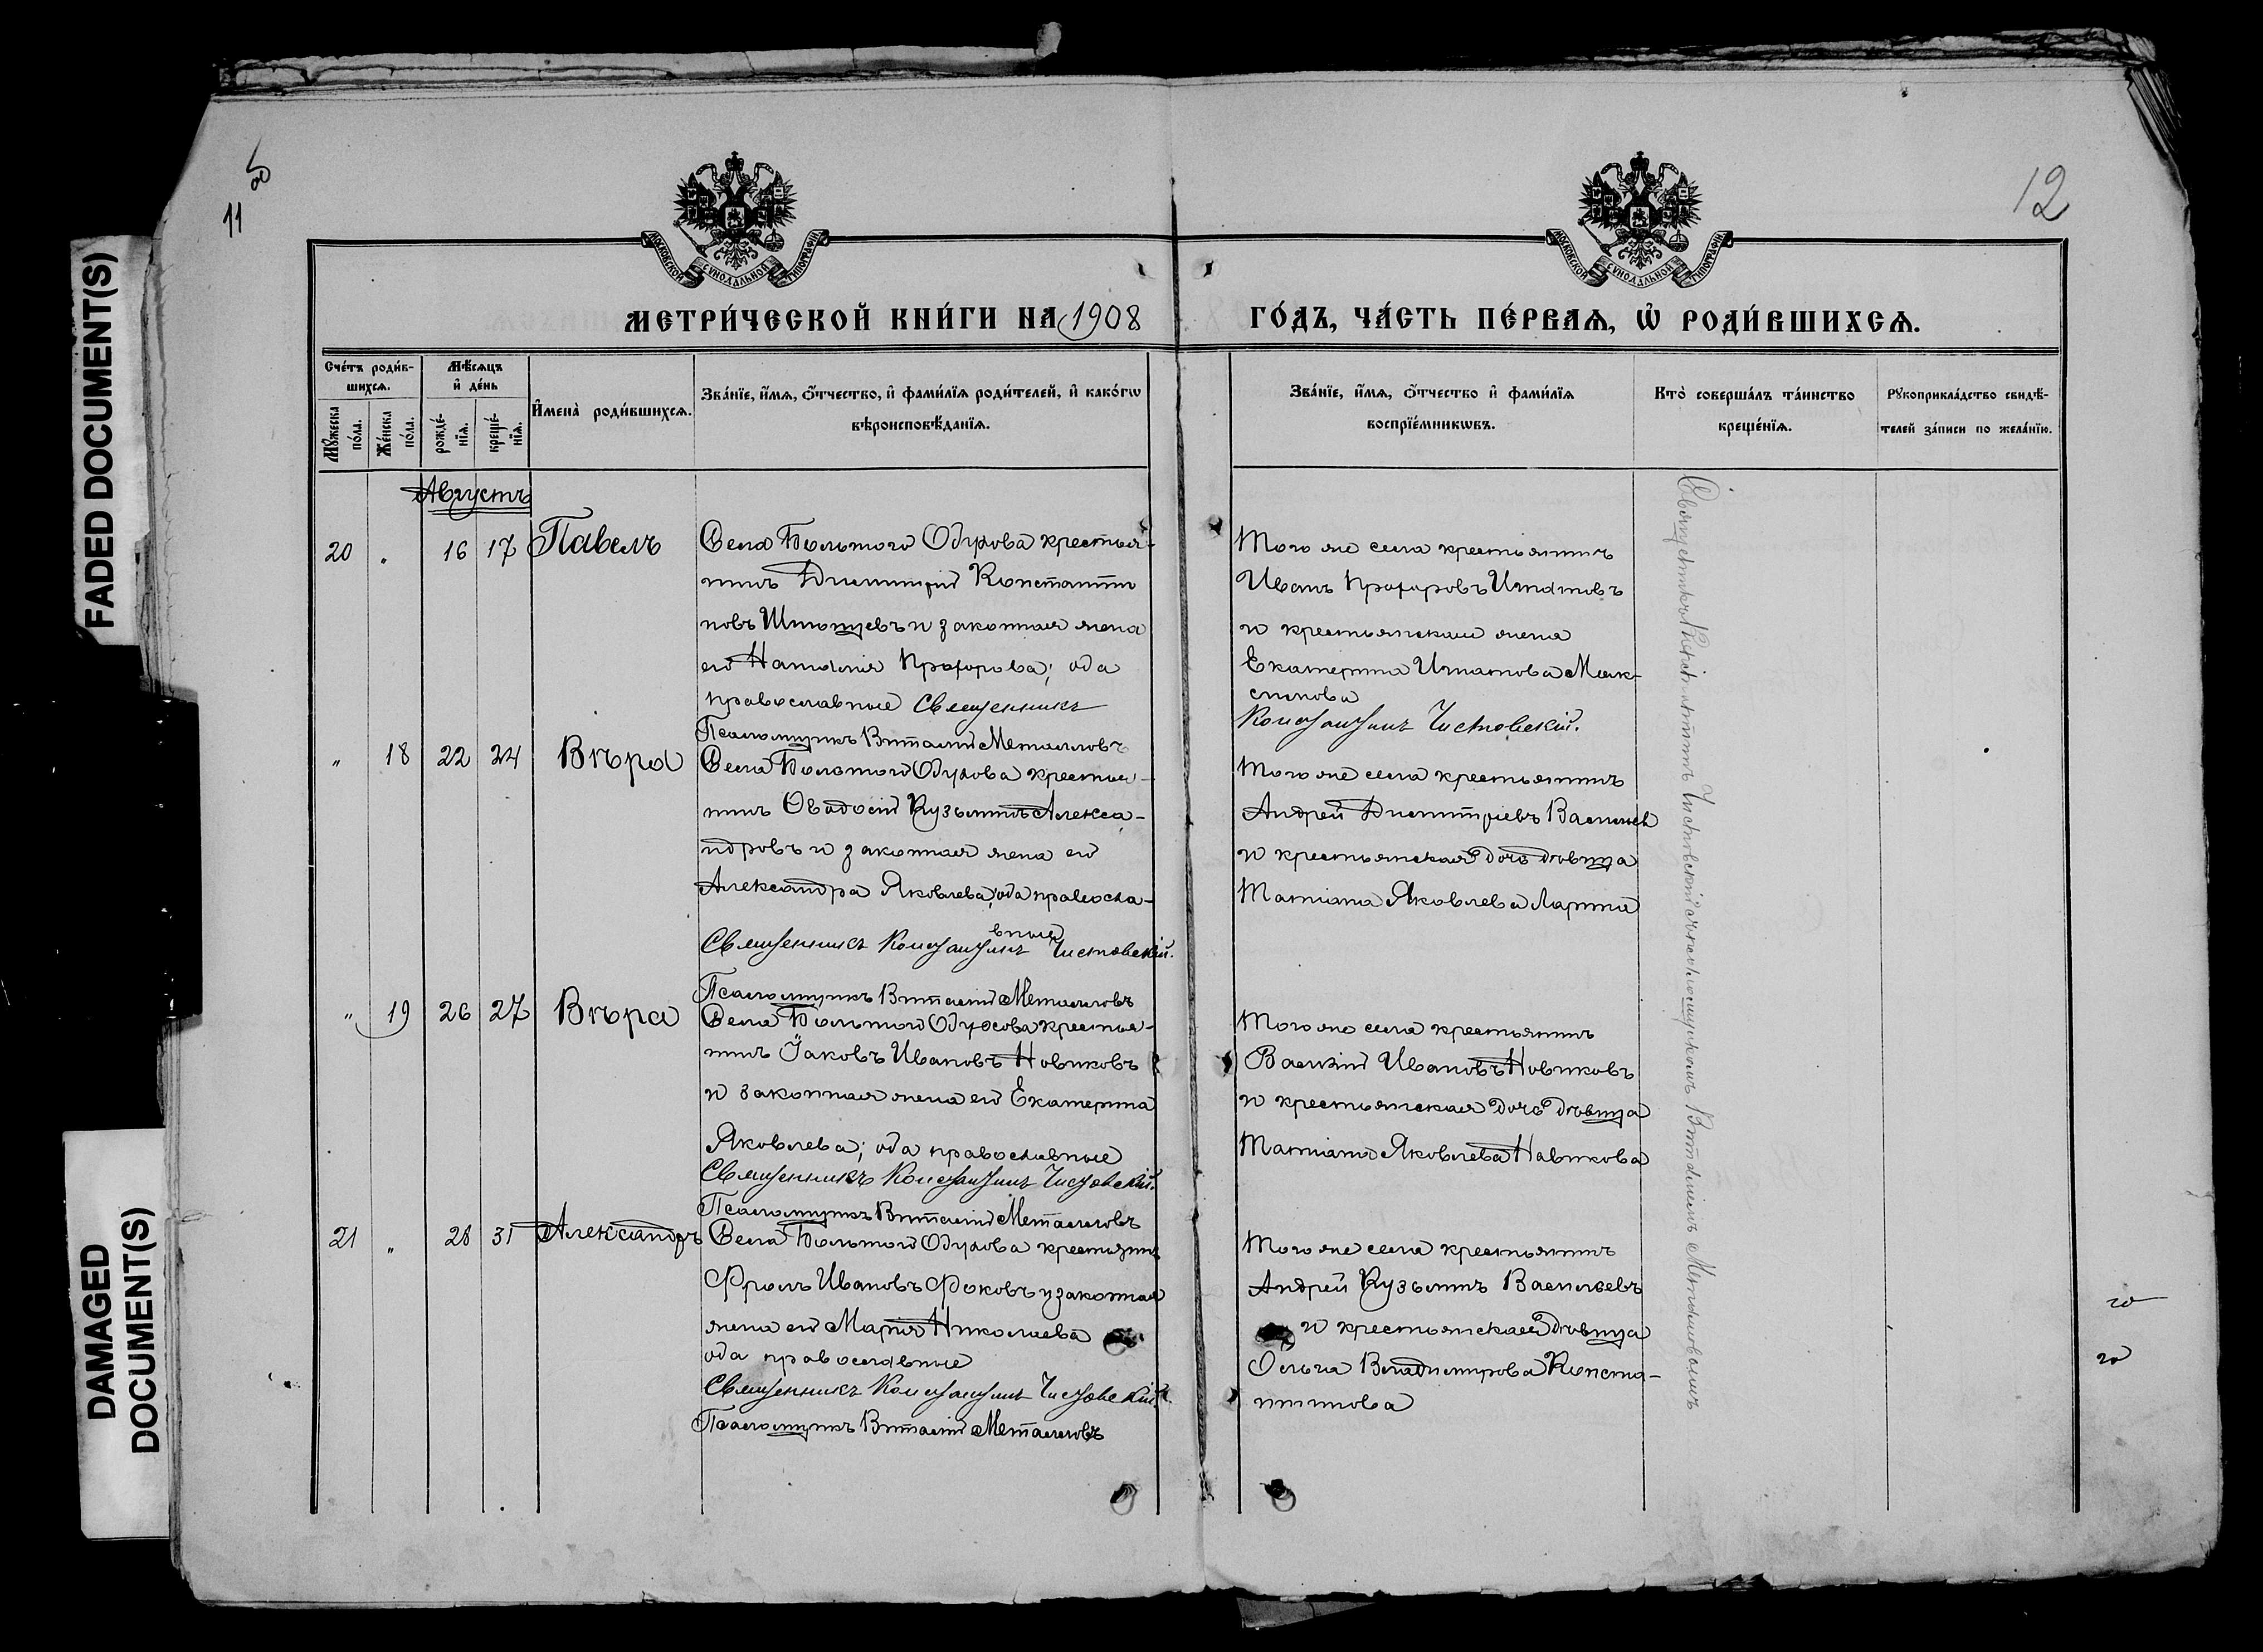 FADED DOCUMENT(S)
DAMAGED
DOCUMENT(S)
11
12
МОСКОВСКОЙ СѴНОДАЛЬНОЙ ТИПОГРАФІИ
МОСКОВСКОЙ СѴНОДАЛЬНОЙ ТИПОГРАФІИ
МЕТРИ́ЧЕСКОЙ КНИ́ГИ НА 1908
ГО́ДЪ, ЧА́СТЬ ПЕ́РВАѦ, Ѡ҆ РОДИ́ВШИХСѦ.
Сче́тъ роди́в-
шихсѧ.
Мꙋ́жеска по́ла.
Же́нска по́ла.
Мѣ́сѧцъ
и҆ де́нь
рожде́-
нїѧ.
креще́-
нїѧ.
И҆мена̀ роди́вшихсѧ.
Зва́нїе, и҆́мѧ, ѻ҆́тчество, и҆ фами́лїѧ роди́телей, и҆ како́гѡ
вѣроисповѣ́данїѧ.
Зва́нїе, и҆́мѧ, ѻ҆́тчество и҆ фами́лїѧ
воспрїе́мникѡвъ.
Кто̀ соверша́лъ та́инство
креще́нїѧ.
Рꙋкоприкла́дство свидѣ́-
телей за́писи по жела́нїю.
Августъ
20 " 16 17 Павелъ
Села Большого Одухова крестья-
нинъ Димитрій Константи
новъ и законная жена
его Наталія Прохорова; оба
православные Священникъ
Псаломщикъ Виталій Металловъ
Того же села крестьянинъ
Иванъ Прохоровъ Игнатовъ
и крестьянская жена
Екатерина Игнатова Мак-
симова
Константинъ Чистовскій.
" 18 22 24 Вѣра
Села Большого Одухова крестья-
нинъ Ѳеодосій Кузьминъ Алекса-
ндровъ и законная жена его
Александра Яковлева; оба правосла-
вные
Священникъ Константинъ Чистовскій.
Псаломщикъ Виталій Металловъ
Того же села крестьянинъ
Андрей Димитріевъ Васильев
и крестьянская дочь дѣвица
Татіана Яковлева Ларина
" 19 26 27 Вѣра
Села Большого Одухова крестья-
нинъ Іаковъ Ивановъ Новиковъ
и законная жена его Екатерина
Яковлева; оба православные
Священникъ Константинъ Чистовскій.
Псаломщикъ Виталій Металловъ
Того же села крестьянинъ
Василій Ивановъ Новиковъ
и крестьянская дочь дѣвица
Татіана Яковлева Навикова
21 " 28 31 Александръ
Села Большого Одухова крестьянинъ
Фролъ Ивановъ Фоковъ и законная
жена его Марія Николаева
оба православные
Священникъ Константинъ Чистовскій.
Псаломщикъ Виталій Металловъ
Того же села крестьянинъ
Андрей Кузьминъ Васильевъ
и крестьянская дѣвица
Ольга Владимирова Конста-
нтинова
Священникъ Константинъ Чистовскій съ псаломщикомъ Виталіемъ Металловымъ